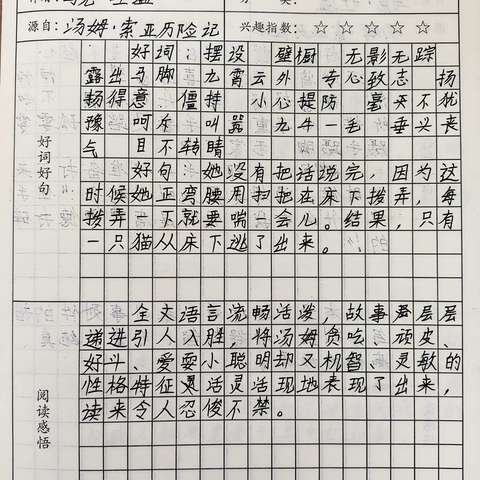 源自：汤姆·索亚历险记 兴趣指数：☆☆☆☆☆
好词好句
好词：摆设 壁橱 无影无踪
露出马脚 九霄云外 专心致志 扬
扬得意 僵持 小心提防 毫不犹
豫 呵斥 叫嚣 九牛一毛 垂头丧
气 目不转睛
好句：她没有把话说完，因为这
时候她正弯腰用扫把在床下拨弄，每
拨弄一下就要喘一会儿。结果，只有
一只猫从床下逃了出来。
阅读感悟
全文语言流畅活泼，故事层层
递进引人入胜，将汤姆贪吃、顽皮、
好斗、爱耍小聪明却又机智、灵敏的
性格特征灵活灵活现地表现了出来，
读来令人忍俊不禁。